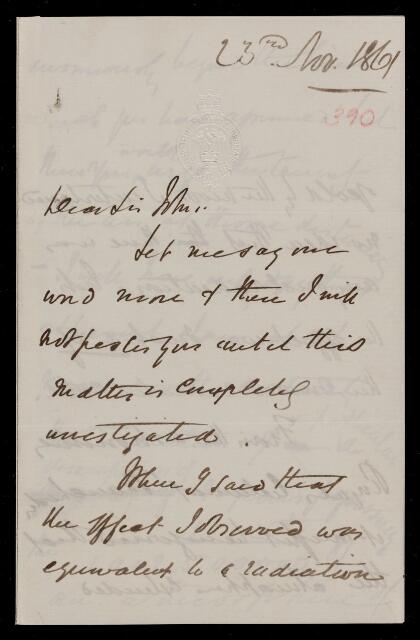 23rd Nov. 1861
390
Dear Sir John.
Let me say one
word more & then I will
not pester you until this
matter is completely
investigated.
When I said that
the effect I observed was
equivalent to a radiation